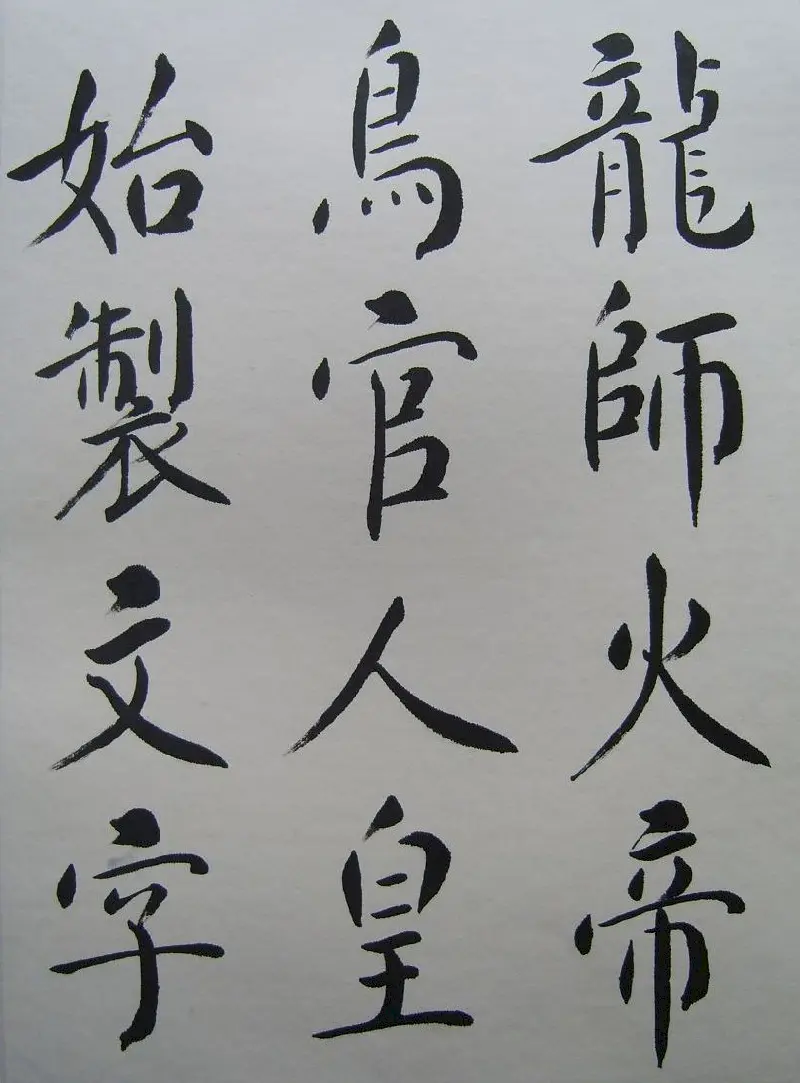 龍師火帝
鳥官人皇
始製文字